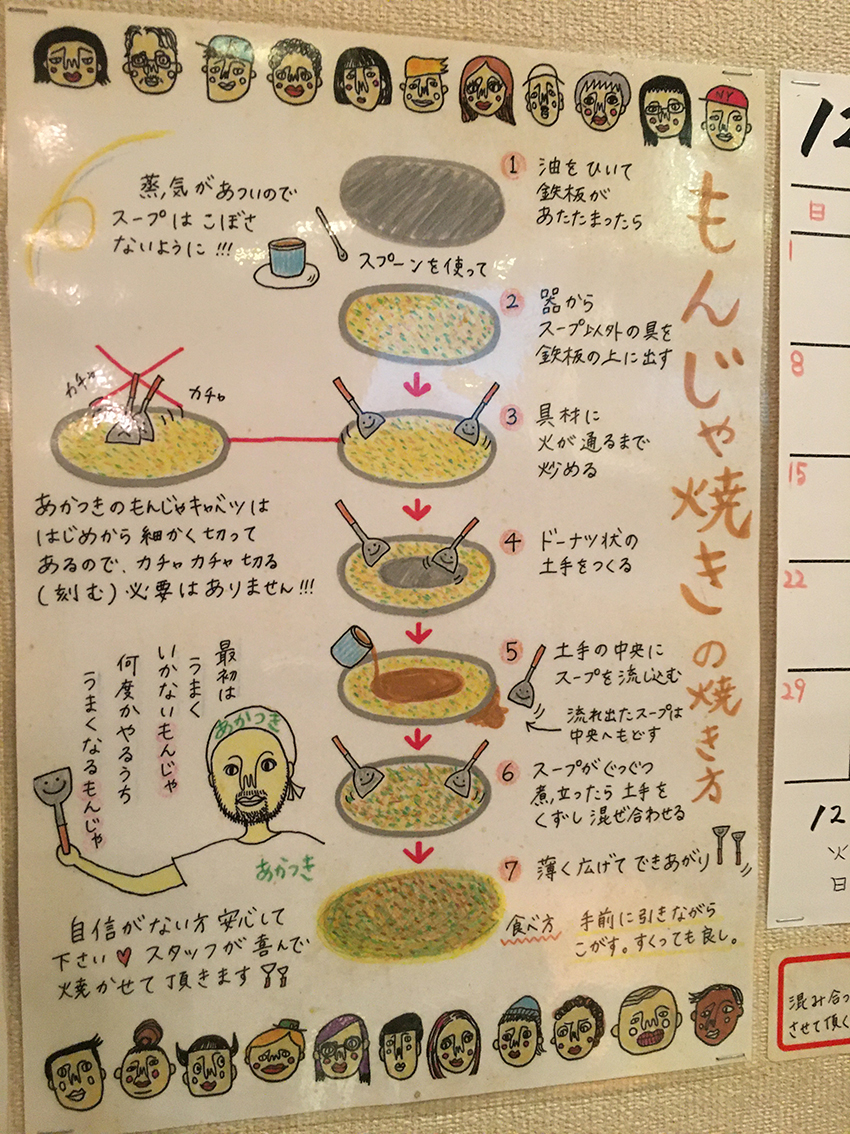 もんじゃ焼きの焼き方
1 油をひいて
鉄板が
あたたまったら
蒸気があついので
スープはこぼさ
ないように!!!
スプーンを使って
2 器から
スープ以外の具を
鉄板の上に出す
3 具材に
火が通るまで
炒める
カチャ
カチャ
あかつきのもんじゃキャベツは
はじめから細かく切って
あるので、カチャカチャ切る
(刻む)必要はありません!!!
4 ドーナツ状の
土手をつくる
5 土手の中央に
スープを流し込む
流れ出たスープは
中央へもどす
6 スープがぐつぐつ
煮立ったら土手を
くずし混ぜ合わせる
7 薄く広げてできあがり
食べ方 手前に引きながら
こがす。すくっても良し。
最初は
うまく
いかないもんじゃ
何度かやるうち
うまくなるもんじゃ
あかつき
あかつき
自信がない方安心して
下さい♥スタッフが喜んで
焼かせて頂きます
NY
12
日
1
8
15
22
29
12
火
日
混み合っ
させて頂く